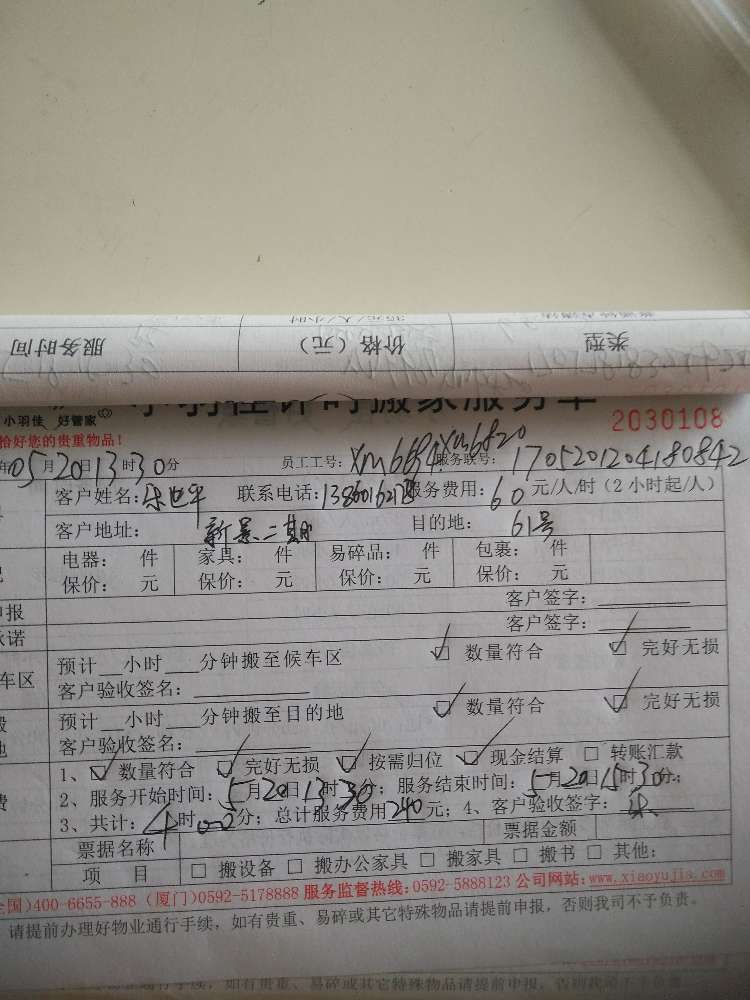 类型 价格（元） 服务时间
小羽佳 好管家 小羽佳计时搬家服务单 2030108
恰好您的贵重物品！
年05月20日13时30分 员工工号：xm6684 xm6820 服务联号：1705201204180842
客户姓名： 联系电话： 服务费用：60元/人/时（2小时起/人）
客户地址：新景二期 目的地：61号
电器： 件 家具： 件 易碎品： 件 包裹： 件
保价： 元 保价： 元 保价： 元 保价： 元
申报 客户签字：
承诺 客户签字：
预计 小时 分钟搬至候车区 ☑ 数量符合 ☑ 完好无损
车区 客户验收签名：
预计 小时 分钟搬至目的地 ☑ 数量符合 ☑ 完好无损
地 客户验收签名：
1、☑ 数量符合 ☑ 完好无损 ☑ 按需归位 ☑ 现金结算 □ 转账汇款
费 2、服务开始时间：5月20日13时30分；服务结束时间：5月20日15时30分；
3、共计：4时00分；总计服务费用240元；4、客户验收签字：
票据名称 票据金额
项 目 □ 搬设备 □ 搬办公家具 □ 搬家具 □ 搬书 □ 其他：
全国)400-6655-888 (厦门)0592-5178888 服务监督热线：0592-5888123 公司网站：www.xiaoyujia.com
请提前办理好物业通行手续，如有贵重、易碎或其它特殊物品请提前申报，否则我司不予负责。